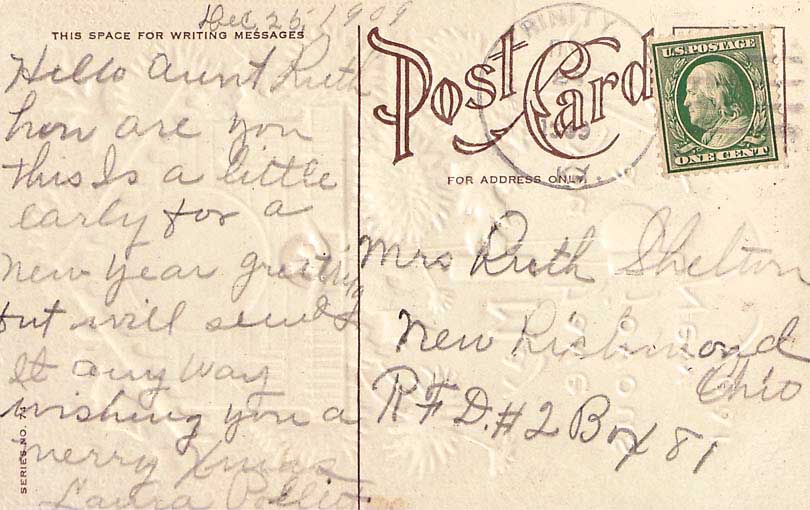 Dec 25, 1909
THIS SPACE FOR WRITING MESSAGES
Hello Aunt Ruth
how are you
this Is a little
early for a
New year greeting
but will send
It any way
wishing you a
merry Xmas
Laura
SERIES NO.
Post Card
FOR ADDRESS ONLY.
TRINITY
1909
KY.
U.S. POSTAGE
ONE CENT
Mrs Ruth Shelton
New Richmond
Ohio
R.F.D. #2 Box 81